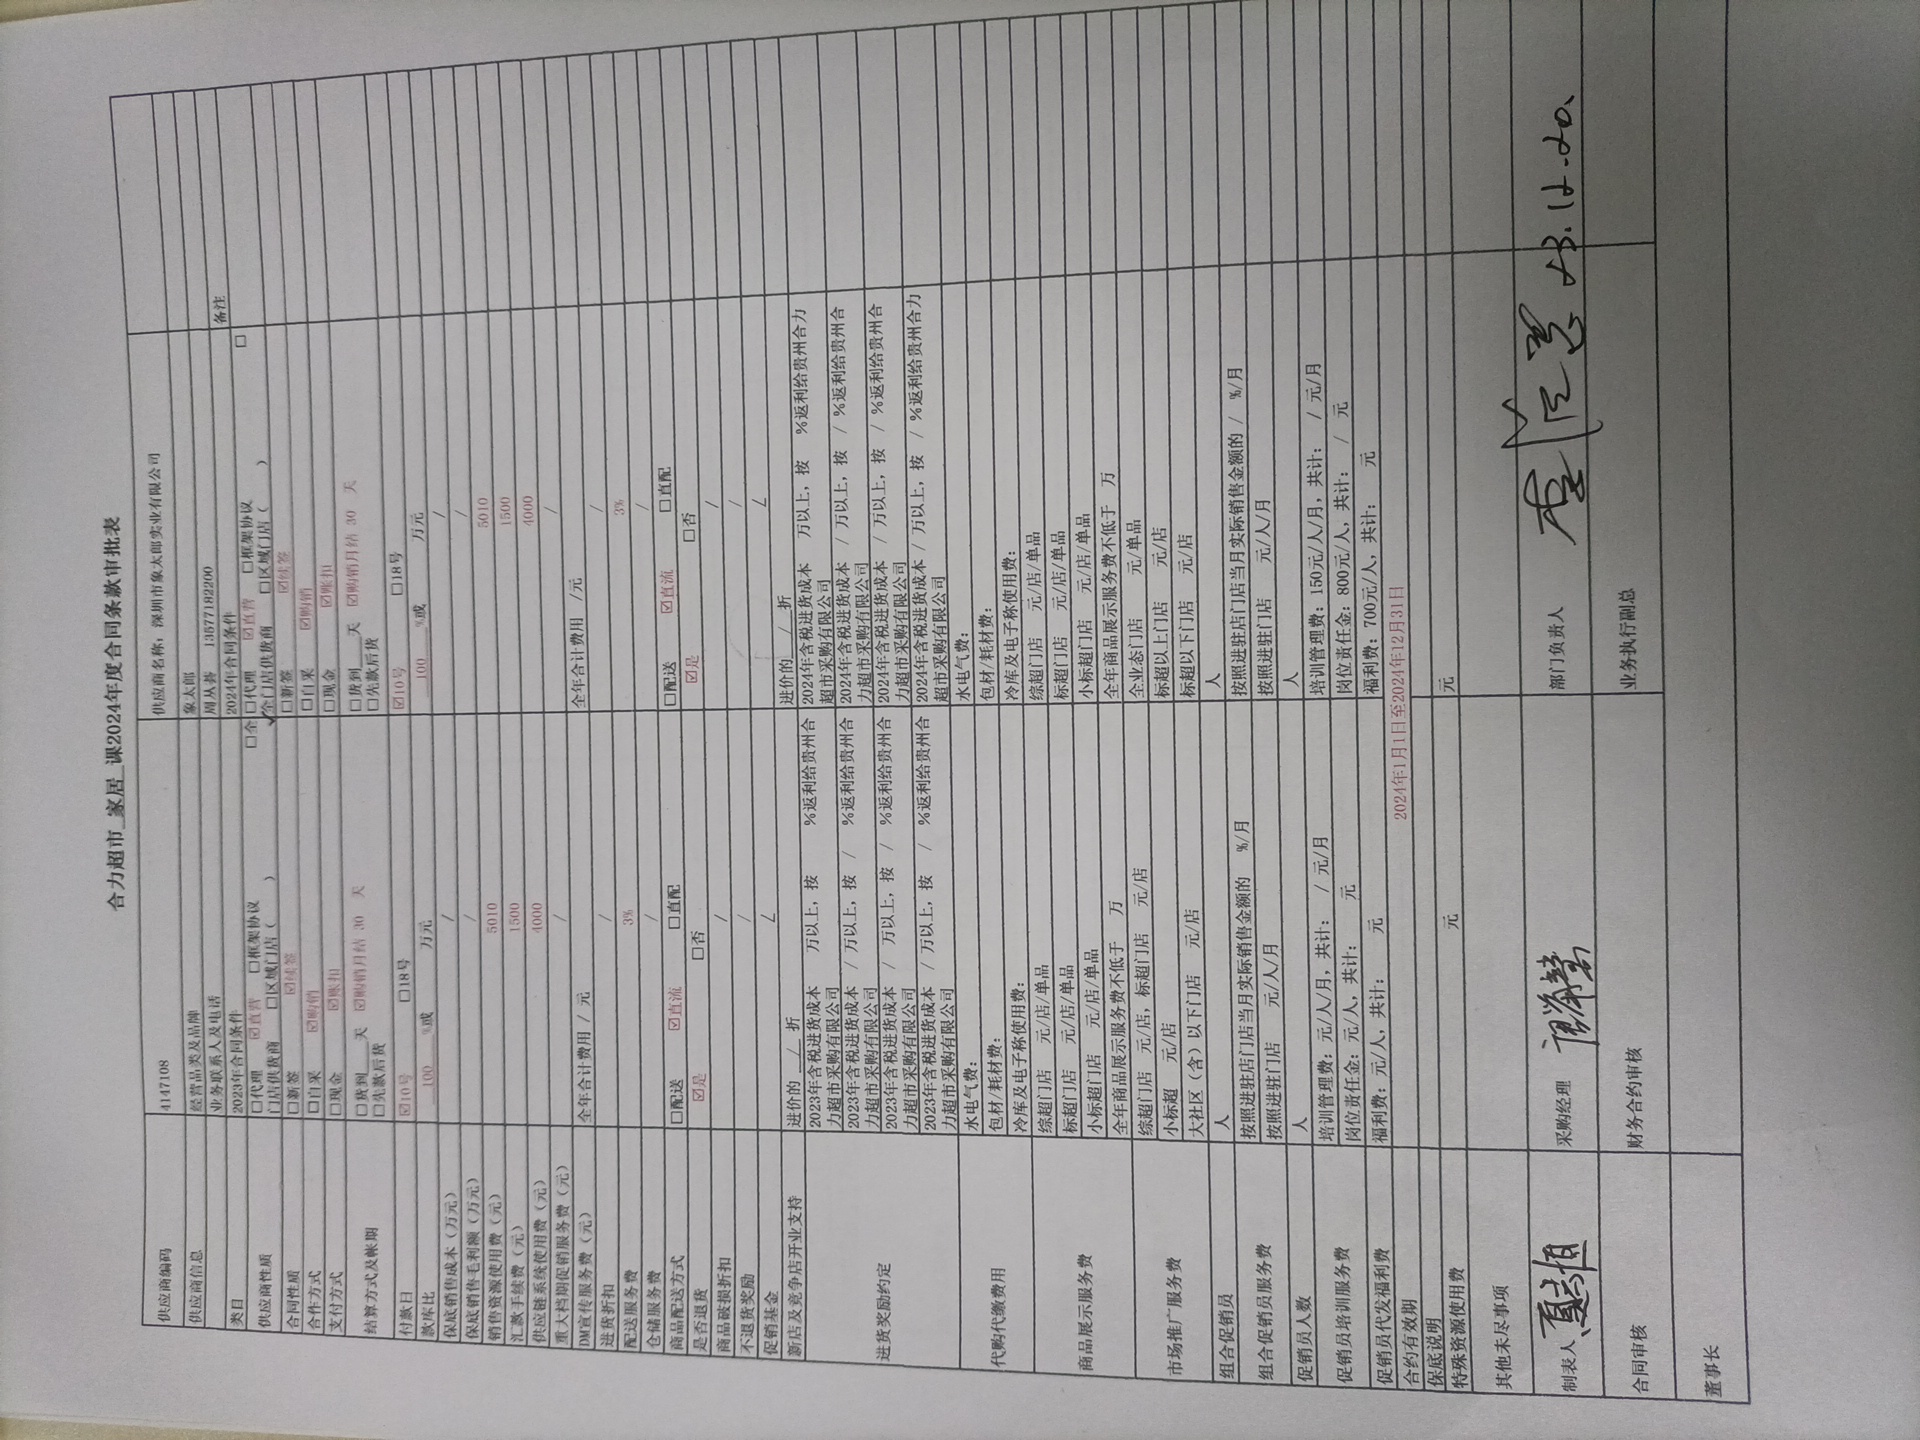 合力超市 家居 课2024年度合同条款审批表
供应商编码 4147108 供应商名称：深圳市象太郎实业有限公司
供应商信息 经营品类及品牌 象太郎
业务联系人及电话 周从荟 13577182200
类目 2023年合同条件 2024年合同条件 备注
供应商性质 □代理 ☑直营 □框架协议 □全 □代理 ☑直营 □框架协议 □
门店供货商 □区域门店（ ） 全门店供货商 □区域门店（ ）
合同性质 □新签 ☑续签 □新签 ☑续签
合作方式 □自采 ☑购销 □自采 ☑购销
支付方式 □现金 ☑账扣 □现金 ☑账扣
结算方式及账期 □货到 天 ☑购销月结 30 天 □货到 天 ☑购销月结 30 天
□先款后货 □先款后货
付款日 ☑10号 □18号 ☑10号 □18号
款库比 100 %或 万元 100 %或 万元
保底销售成本（万元） / /
保底销售毛利额（万元） / /
销售资源使用费（元） 5010 5010
汇款手续费（元） 1500 1500
供应链系统使用费（元） 4000 4000
重大档期促销服务费（元） / /
DM宣传服务费（元） 全年合计费用 / 元 全年合计费用 /元
进货折扣 / /
配送服务费 3% 3%
仓储服务费 / /
商品配送方式 □配送 ☑直流 □直配 □配送 ☑直流 □直配
是否退货 ☑是 □否 ☑是 □否
商品破损折扣 / /
不退货奖励 / /
促销基金 / /
新店及竞争店开业支持 进价的 / 折 进价的 / 折
进货奖励约定 2023年含税进货成本 万以上，按 %返利给贵州合力超市采购有限公司 2024年含税进货成本 万以上，按 %返利给贵州合力超市采购有限公司
2023年含税进货成本 / 万以上，按 / %返利给贵州合力超市采购有限公司 2024年含税进货成本 / 万以上，按 / %返利给贵州合力超市采购有限公司
2023年含税进货成本 / 万以上，按 / %返利给贵州合力超市采购有限公司 2024年含税进货成本 / 万以上，按 / %返利给贵州合力超市采购有限公司
2023年含税进货成本 / 万以上，按 / %返利给贵州合力超市采购有限公司 2024年含税进货成本 / 万以上，按 / %返利给贵州合力超市采购有限公司
代购代缴费用 水电气费： 水电气费：
包材/耗材费： 包材/耗材费：
冷库及电子称使用费： 冷库及电子称使用费：
商品展示服务费 综超门店 元/店/单品 综超门店 元/店/单品
标超门店 元/店/单品 标超门店 元/店/单品
小标超门店 元/店/单品 小标超门店 元/店/单品
全年商品展示服务费不低于 万 全年商品展示服务费不低于 万
市场推广服务费 综超门店 元/店，标超门店 元/店 全业态门店 元/单品
小标超 元/店 标超以上门店 元/店
大社区（含）以下门店 元/店 标超以下门店 元/店
组合促销员 人 人
组合促销员服务费 按照进驻店门店当月实际销售金额的 %/月 按照进驻店门店当月实际销售金额的 / %/月
按照进驻门店 元/人/月 按照进驻门店 元/人/月
促销员人数 人 人
促销员培训服务费 培训管理费： 元/人/月，共计： / 元/月 培训管理费：150元/人/月，共计： / 元/月
岗位责任金：元/人，共计： 元 岗位责任金：800元/人，共计： / 元
促销员代发福利费 福利费：元/人，共计： 元 福利费：700元/人，共计： 元
合约有效期 2024年1月1日至2024年12月31日
保底说明
特殊资源使用费 元 元
其他未尽事项
制表人 采购经理 部门负责人 23.12.20.
合同审核 财务合约审核 业务执行副总
董事长